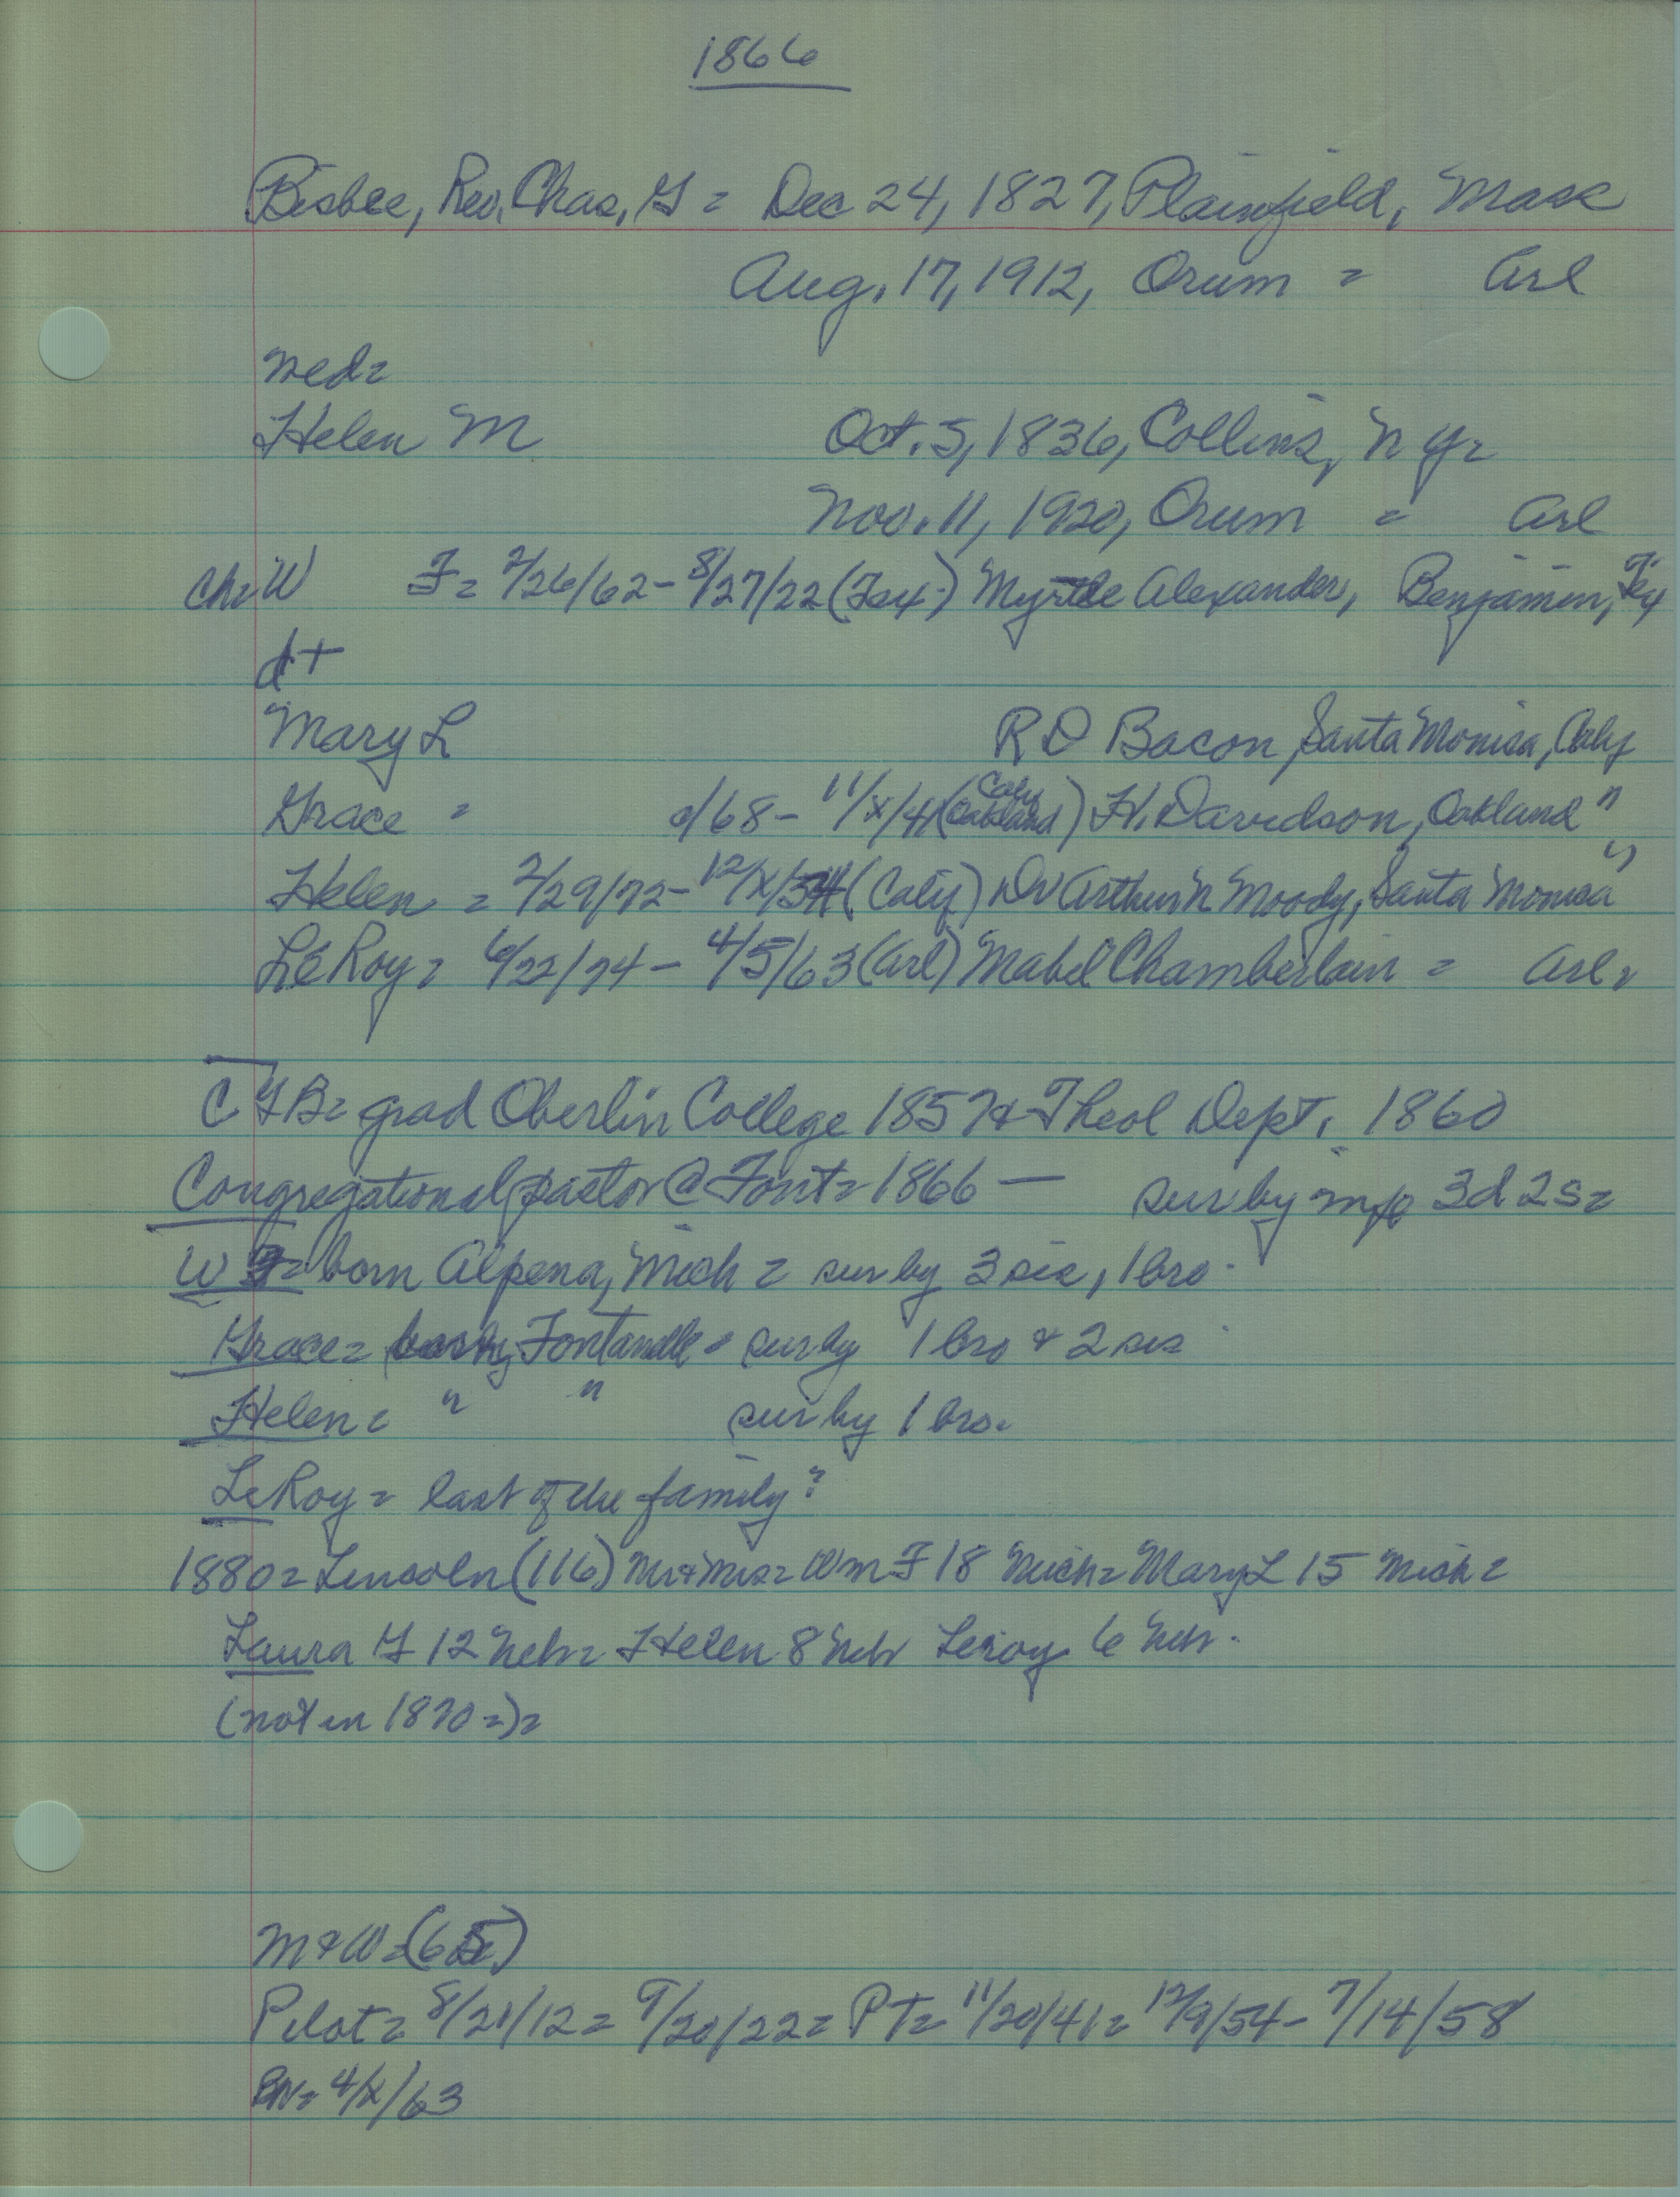 1866
Bisbee, Rev. Chas. G = Dec 24, 1827, Plainfield, Mass
Aug. 17, 1912, Orum = Arl
Helen M Oct. 5, 1836, Collins, N Y =
Nov. 11, 1920, Orum = Arl
Ch = W F = 2/26/62 - 8/27/22 (Tex.) Myrtle Alexander, Benjamin, Tex
d +
Mary L R D Bacon, Santa Monica, Calif
Grace = /68 - 11/x/41 (Oakland Calif) H. Davidson, Oakland "
Helen = 2/29/72 - 12/x/54 (Calif) Dr Arthur N Moody, Santa Monica "
LeRoy = 6/22/74 - 4/5/63 (Arl) Mabel Chamberlain = Arl.
C G B = grad Oberlin College 1857 & Theol Dept. 1860
Congregational pastor @ Font = 1866 — sur by 3d 2s =
W F = born Alpena, Mich = sur by 3 sis, 1 bro.
Grace = Fontanelle = sur by 1 bro & 2 sis
Helen = " " sur by 1 bro.
LeRoy = last of the family?
1880 = Lincoln (116) Mr & Mrs = Wm F 18 Mich = Mary L 15 Mich =
Laura G 12 Neb = Helen 8 Neb Leroy 6 Neb.
(not in 1870 =) =
M & W = (65)
Pilot = 8/21/12 = 9/20/22 = PT = 11/20/41 = 12/9/54 - 7/14/58
= 4/x/63